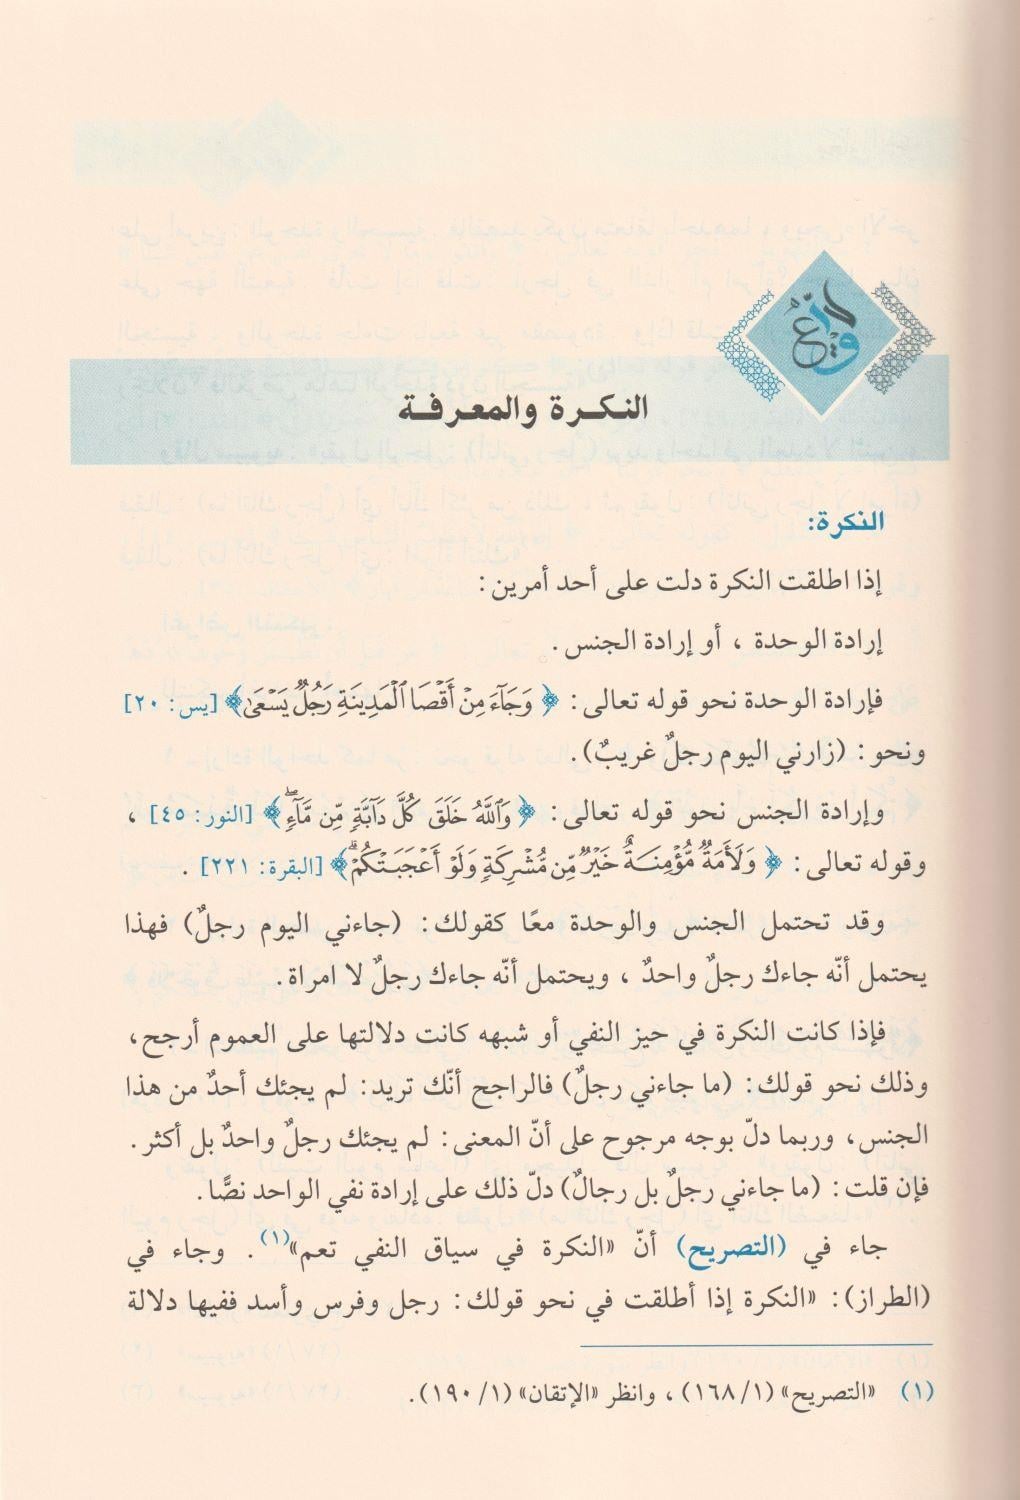 النكرة والمعرفة
النكرة:
إذا اطلقت النكرة دلت على أحد أمرين:
إرادة الوحدة ، أو إرادة الجنس.
فإرادة الوحدة نحو قوله تعالى: ﴿ وَجَآءَ مِنْ أَقْصَا ٱلْمَدِينَةِ رَجُلٌ يَسْعَىٰ ﴾ [يس: ٢٠]
ونحو: (زارني اليوم رجلٌ غريبٌ).
وإرادة الجنس نحو قوله تعالى: ﴿ وَٱللَّهُ خَلَقَ كُلَّ دَآبَّةٍ مِّن مَّآءٍ ۖ ﴾ [النور: ٤٥] ،
وقوله تعالى: ﴿ وَلَأَمَةٌ مُّؤْمِنَةٌ خَيْرٌ مِّن مُّشْرِكَةٍ وَلَوْ أَعْجَبَتْكُمْ ۗ ﴾ [البقرة: ٢٢١] .
وقد تحتمل الجنس والوحدة معًا كقولك: (جاءني اليوم رجلٌ) فهذا
يحتمل أنّه جاءك رجلٌ واحدٌ ، ويحتمل أنّه جاءك رجلٌ لا امراة.
فإذا كانت النكرة في حيز النفي أو شبهه كانت دلالتها على العموم أرجح،
وذلك نحو قولك: (ما جاءني رجلٌ) فالراجح أنّك تريد: لم يجئك أحدٌ من هذا
الجنس، وربما دلّ بوجه مرجوح على أنّ المعنى: لم يجئك رجلٌ واحدٌ بل أكثر.
فإن قلت: (ما جاءني رجلٌ بل رجالٌ) دلّ ذلك على إرادة نفي الواحد نصًّا.
جاء في (التصريح) أنّ «النكرة في سياق النفي تعم»(١). وجاء في
(الطراز): «النكرة إذا أطلقت في نحو قولك: رجل وفرس وأسد ففيها دلالة
(١) «التصريح» (١/ ١٦٨) ، وانظر «الإتقان» (١/ ١٩٠).